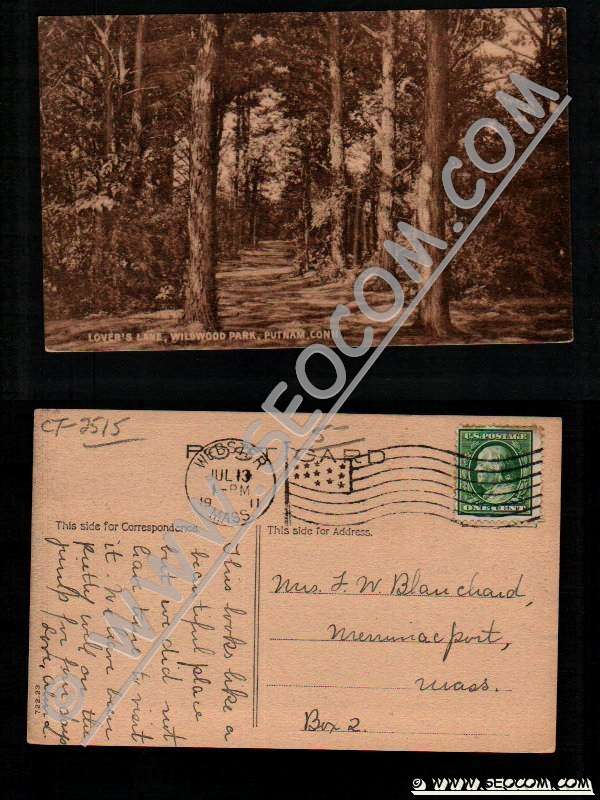 LOVER'S LANE, WILDWOOD PARK, PUTNAM, CONN.
WWW.SEOCOM.COM
CF-2515
POST CARD
WEBSTER
JUL 13
-PM
1911
MASS
U.S. POSTAGE
ONE CENT
This side for Correspondence.
This side for Address.
This looks like a
beautiful place
but we did not
have time to visit
it. Have been
pretty well on the
jump for four days
Love,
Mrs. F. W. Blanchard,
Merrimacport,
Mass.
Box 2
© WWW.SEOCOM.COM